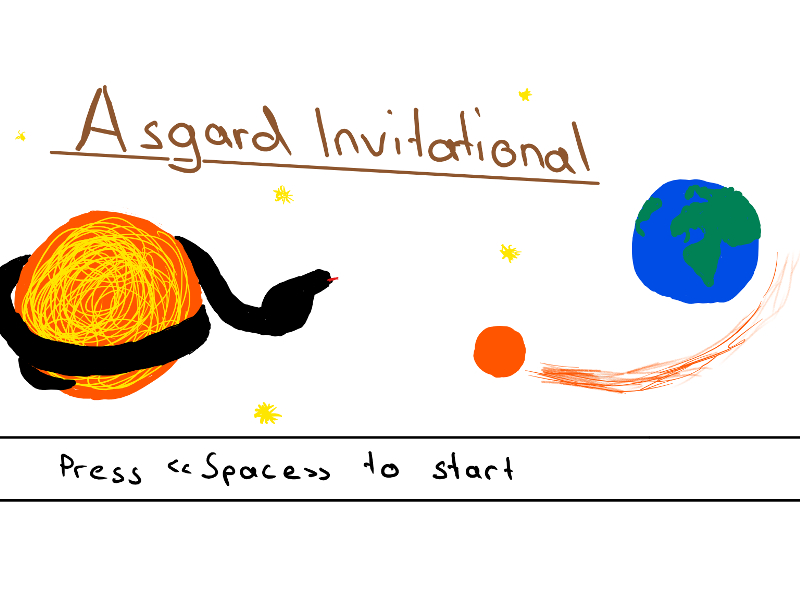 Asgard Invitational
Press <<Space>> to start